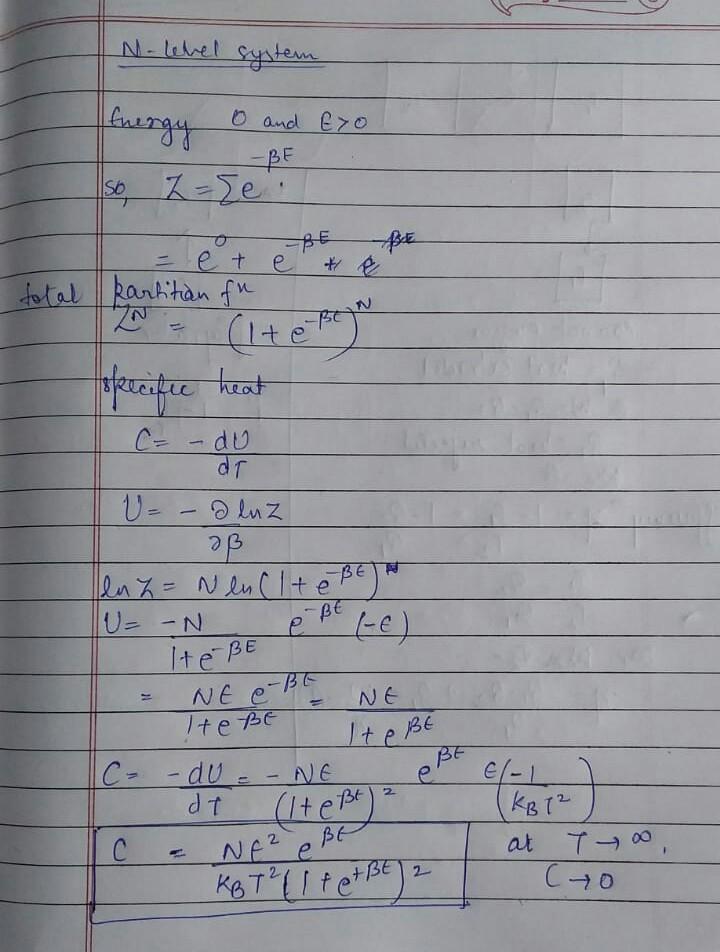 N-level system
Energy 0 and ϵ>0
so, Z = Σe^{-βE}.
= e^0 + e^{-βE}
total partitian fⁿ
Z^N = (1 + e^{-βϵ})^N
specific heat
C = -dU/dT
U = - ∂ ln Z/∂β
ln Z = N ln (1 + e^{-βϵ})
U = -N/(1+e^{-βE}) e^{-βϵ} (-ϵ)
= Nϵ e^{-βϵ}/(1+e^{-βϵ}) = Nϵ/(1+e^{βϵ})
C = -dU/dT = - Nϵ/(1+e^{βϵ})^2 e^{βϵ} ϵ(-1/(K_B T^2))
C = Nϵ^2 e^{βϵ}/(K_B T^2 (1+e^{+βϵ})^2) at T → ∞,
C → 0